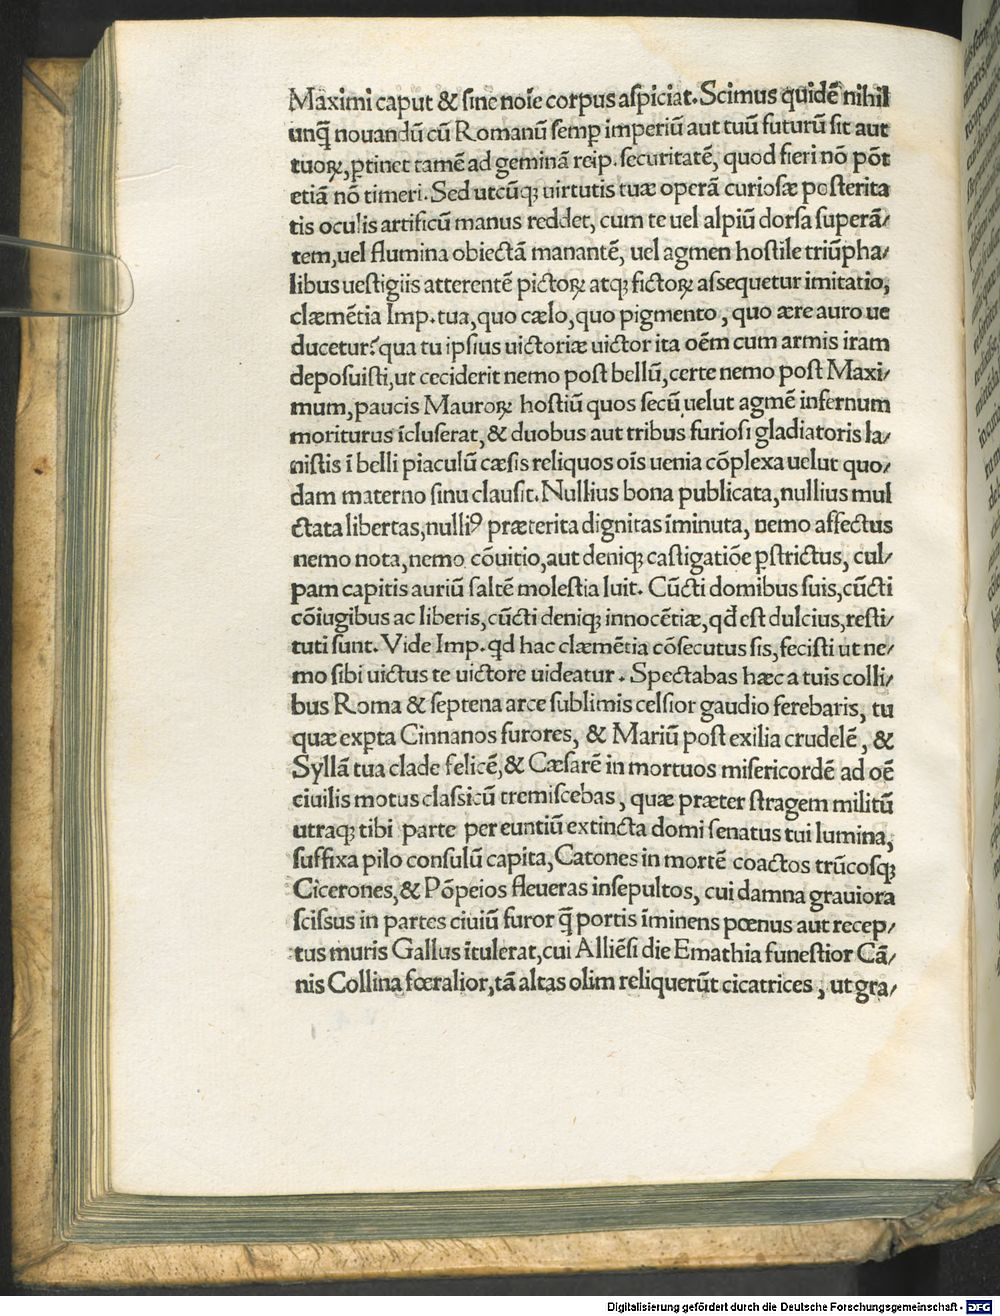 Maximi caput & ſine noı̄e corpus aſpiciat. Scimus quidē nihil
unq̄ nouandū cū Romanū ſemꝑ imperiū aut tuū futurū ſit aut
tuoꝝ, ꝑtinet tamē ad geminā reip. ſecuritatē, quod fieri nō pōt
etiā nō timeri. Sed utcūqꝫ uirtutis tuæ operā curioſæ poſterita
tis oculis artificū manus reddet, cum te uel alpiū dorſa ſuperā/
tem, uel flumina obiectā manantē, uel agmen hoſtile triūpha/
libus ueſtigiis atterentē pictoꝝ atqꝫ fictoꝝ aſſequetur imitatio,
clæmētia Imp. tua, quo cælo, quo pigmento, quo ære auro ue
ducetur? qua tu ipſius uictoriæ uictor ita oēm cum armis iram
depoſuiſti, ut ceciderit nemo poſt bellū, certe nemo poſt Maxi/
mum, paucis Mauroꝝ hoſtiū quos ſecū uelut agmē infernum
moriturus īcluſerat, & duobus aut tribus furioſi gladiatoris la/
niſtis ī belli piaculū cæſis reliquos oīs uenia cōplexa uelut quo/
dam materno ſinu clauſit. Nullius bona publicata, nullius mul
ctata libertas, nulliꝰ præterita dignitas īminuta, nemo affectus
nemo nota, nemo cōuitio, aut deniqꝫ caſtigatiōe ꝑſtrictus, cul/
pam capitis auriū ſaltē moleſtia luit. Cūcti domibus ſuis, cūcti
cōiugibus ac liberis, cūcti deniqꝫ innocētiæ, qđ eſt dulcius, reſti/
tuti ſunt. Vide Imp. qd hac clæmētia cōſecutus ſis, feciſti ut ne/
mo ſibi uictus te uictore uideatur. Spectabas hæc a tuis colli/
bus Roma & ſeptena arce ſublimis celſior gaudio ferebaris, tu
quæ expta Cinnanos furores, & Mariū poſt exilia crudelē, &
Syllā tua clade felicē, & Cæſarē in mortuos miſericordē ad oē
ciuilis motus claſſicū tremiſcebas, quæ præter ſtragem militū
utraqꝫ tibi parte pereuntiū extincta domi ſenatus tui lumina,
ſuffixa pilo conſulū capita, Catones in mortē coactos trūcoſqꝫ
Cicerones, & Pōpeios fleueras inſepultos, cui damna grauiora
ſciſſus in partes ciuiū furor q̄ portis īminens pœnus aut recep/
tus muris Gallus ītulerat, cui Alliēſi die Emathia funeſtior Cā/
nis Collina fœralior, tā altas olim reliquerūt cicatrices, ut gra/
Digitalisierung gefördert durch die Deutsche Forschungsgemeinschaft - DFG